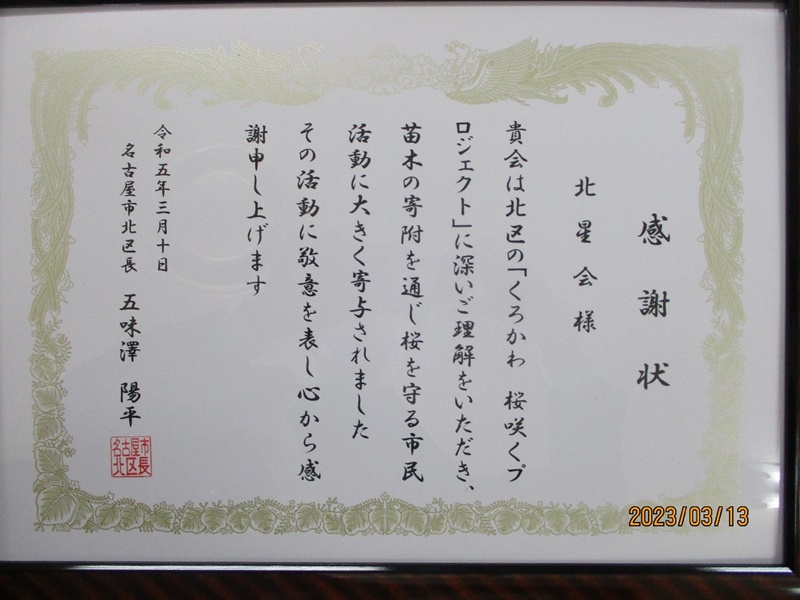 感謝状
北星会様
貴会は北区の「くろかわ 桜咲くプ
ロジェクト」に深いご理解をいただき、
苗木の寄附を通じ桜を守る市民
活動に大きく寄与されました
その活動に敬意を表し心から感
謝申し上げます
令和五年三月十日
名古屋市北区長 五味澤 陽平
名古屋市
北区長
2023/03/13